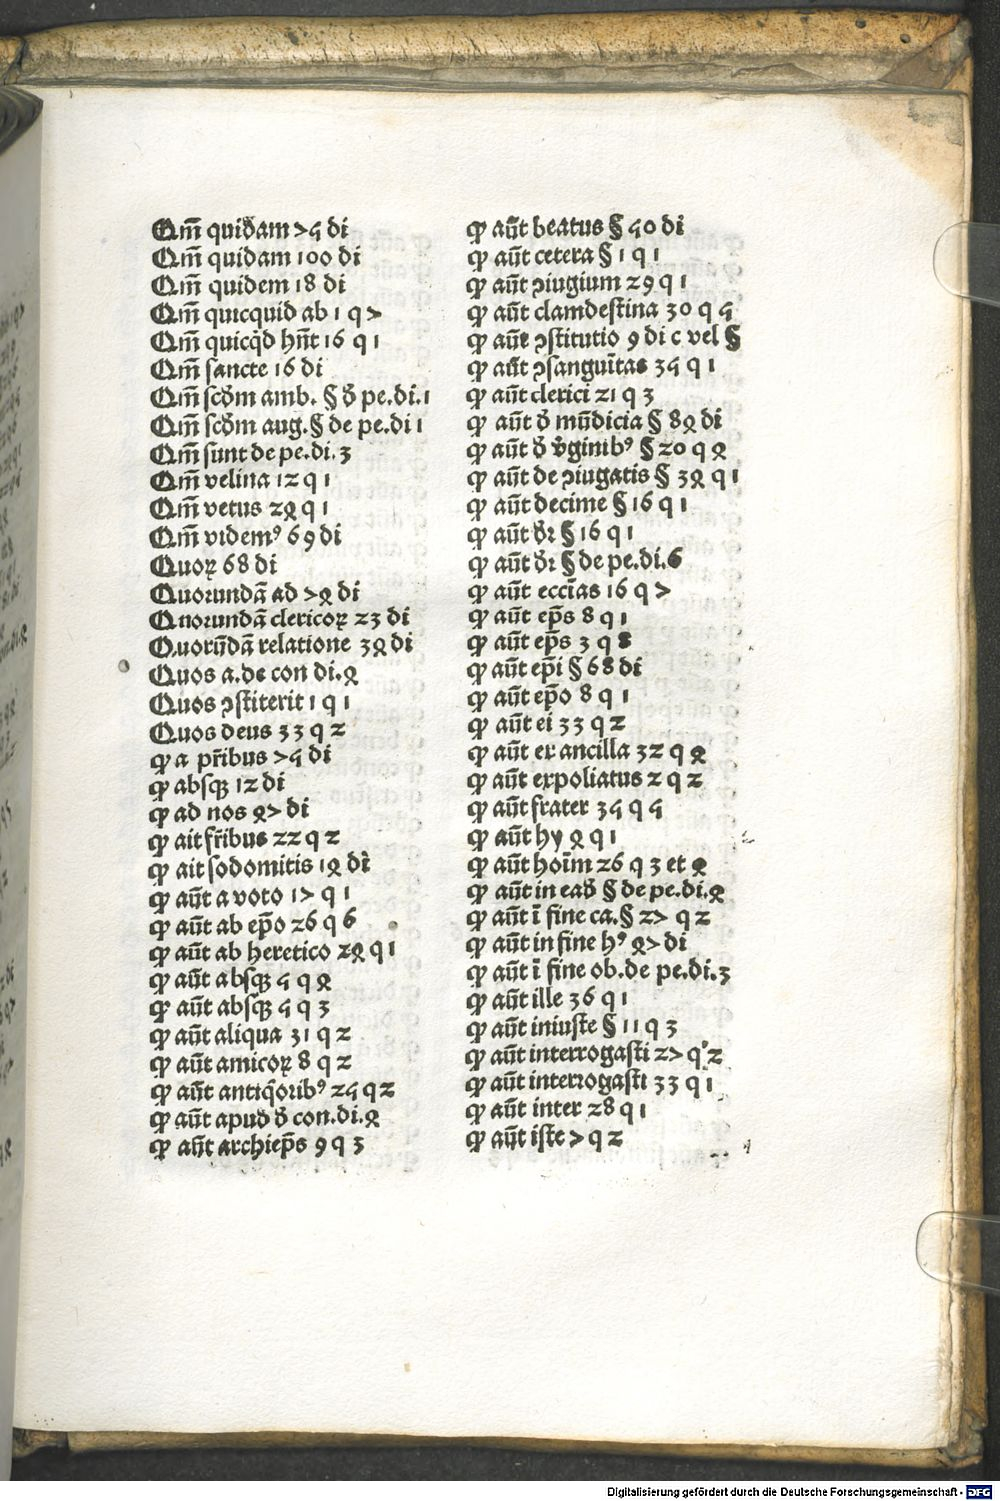 Qm̄ quidam 75 di
Qm̄ quidam 100 di
Qm̄ quidem 18 di
Qm̄ quicquid ab 1 q 7
Qm̄ quicq̄d hn̄t 16 q 1
Qm̄ sancte 16 di
Qm̄ scd̄m amb. § d̄ pe.di.1
Qm̄ scd̄m aug.§ de pe.di 1
Qm̄ sunt de pe.di.3
Qm̄ velina 12 q 1
Qm̄ vetus 24 q 1
Qm̄ videmꝰ 69 di
Quoꝝ 68 di
Quorundā ad 74 di
Quorundā clericoꝝ 23 di
Quorūdā relatione 34 di
Quos a.de con di.4
Quos ꝯstiterit 1 q 1
Quos deus 33 q 2
ꝙ a pr̄ibus 75 di
ꝙ absqꝫ 12 di
ꝙ ad nos 47 di
ꝙ ait fr̄ibus 22 q 2
ꝙ ait sodomitis 14 di
ꝙ aūt a voto 17 q 1
ꝙ aūt ab ep̄o 26 q 6
ꝙ aūt ab heretico 24 q 1
ꝙ aūt absqꝫ 5 q 4
ꝙ aūt absqꝫ 5 q 3
ꝙ aūt aliqua 31 q 2
ꝙ aūt amicoꝝ 8 q 2
ꝙ aūt antiq̄oribꝰ 25 q 2
ꝙ aūt apud d̄ con.di.4
ꝙ aūt archiep̄s 9 q 3
ꝙ aūt beatus § 50 di
ꝙ aūt cetera § 1 q 1
ꝙ aūt ꝯiugium 29 q 1
ꝙ aūt clamdestina 30 q 5
ꝙ aūt ꝯstitutio 9 di c vel §
ꝙ aūt ꝯsanguītas 35 q 1
ꝙ aūt clerici 21 q 3
ꝙ aūt d̄ mūdicia § 84 di
ꝙ aūt d̄ v̄ginibꝰ § 20 q 4
ꝙ aūt de ꝯiugatis § 34 q 1
ꝙ aūt decime § 16 q 1
ꝙ aūt dr̄ § 16 q 1
ꝙ aūt dr̄ § de pe.di.6
ꝙ aūt ecc̄ias 16 q 7
ꝙ aūt ep̄s 8 q 1
ꝙ aūt ep̄s 3 q 8
ꝙ aūt ep̄i § 68 di
ꝙ aūt ep̄o 8 q 1
ꝙ aūt ei 33 q 2
ꝙ aūt ex ancilla 32 q 4
ꝙ aūt expoliatus 2 q 2
ꝙ aūt frater 35 q 5
ꝙ aūt hy 4 q 1
ꝙ aūt hoīm 26 q 3 et 4
ꝙ aūt in ead̄ § de pe.di.4
ꝙ aūt ī fine ca.§ 27 q 2
ꝙ aūt in fine hꝰ 47 di
ꝙ aūt ī fine ob.de pe.di.3
ꝙ aūt ille 36 q 1
ꝙ aūt iniuste § 11 q 3
ꝙ aūt interrogasti 27 q 2
ꝙ aūt interrogasti 33 q 1
ꝙ aūt inter 28 q 1
ꝙ aūt iste 7 q 2
Digitalisierung gefördert durch die Deutsche Forschungsgemeinschaft - DFG